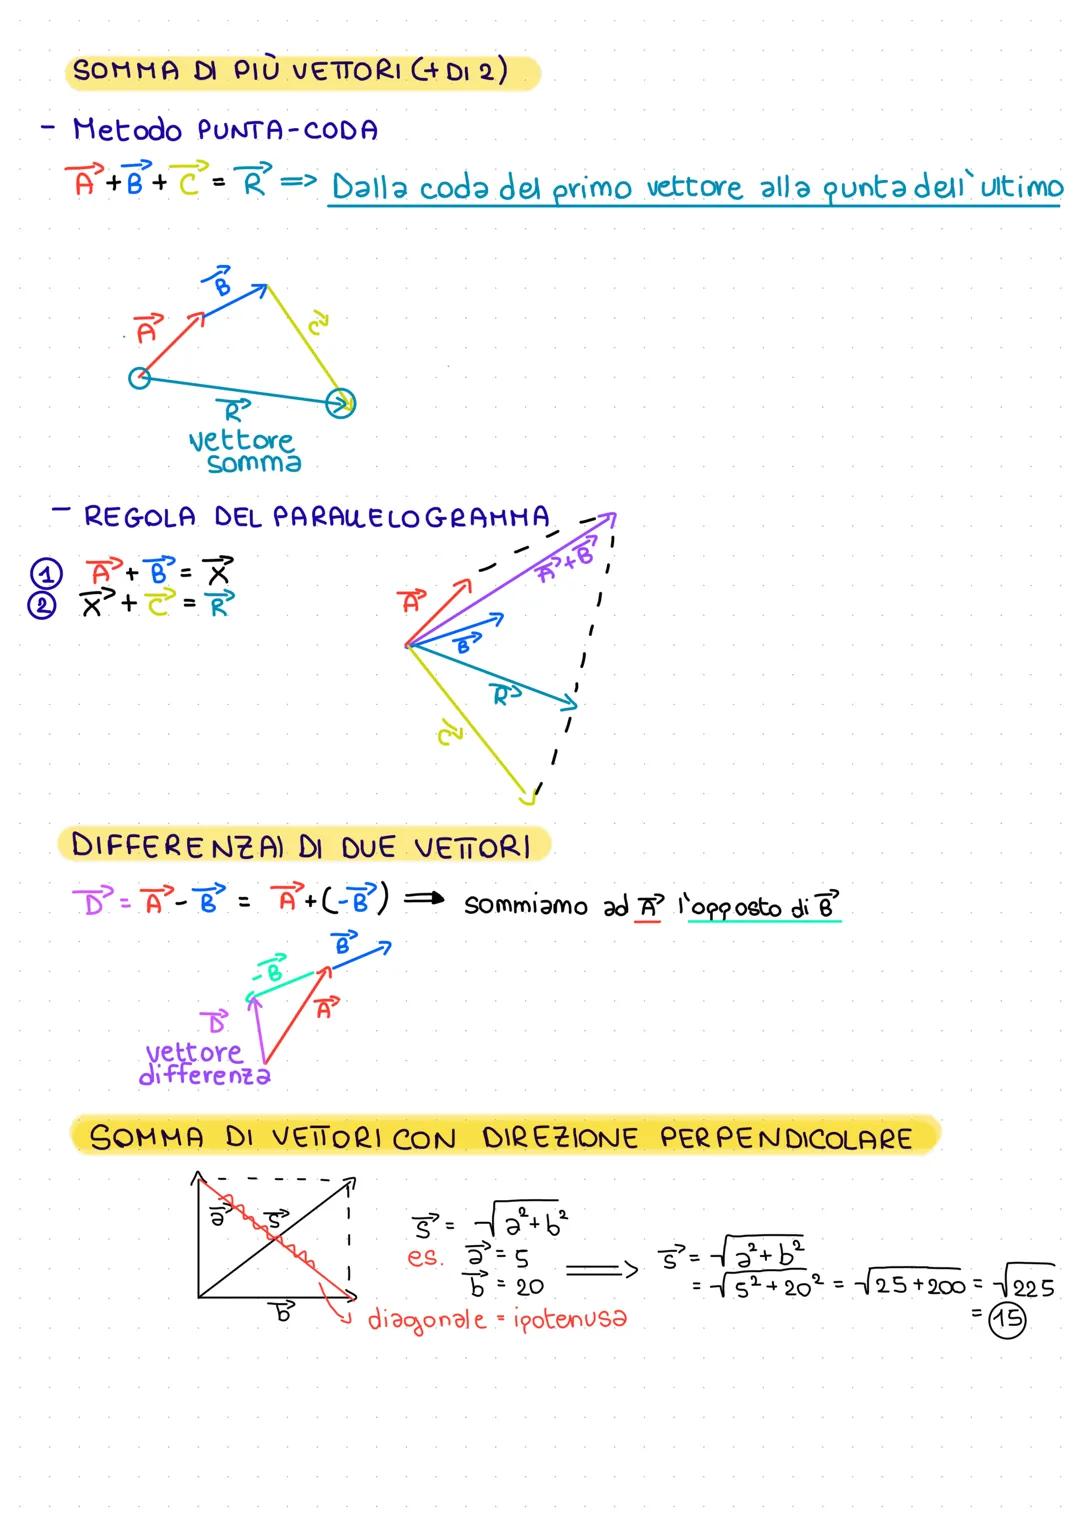 SOMMA DI PIÙ VETTORI (+ DI 2)
- Metodo PUNTA-CODA
A + B + C = R => Dalla coda del primo vettore alla punta dell'ultimo
B
A
C
R
vettore
somma
- REGOLA DEL PARALLELOGRAMMA
① A + B = X
② X + C = R
A+B
A
B
R
C
DIFFERENZAI DI DUE VETTORI
D = A - B = A + (-B) ⟹ sommiamo ad A l'opposto di B
B
-B
A
D
vettore
differenza
SOMMA DI VETTORI CON DIREZIONE PERPENDICOLARE
a
s
b
s = √a²+b²
es. a = 5
b = 20
diagonale = ipotenusa
s = √a²+b²
= √5²+20² = √25+200 = √225
= 15